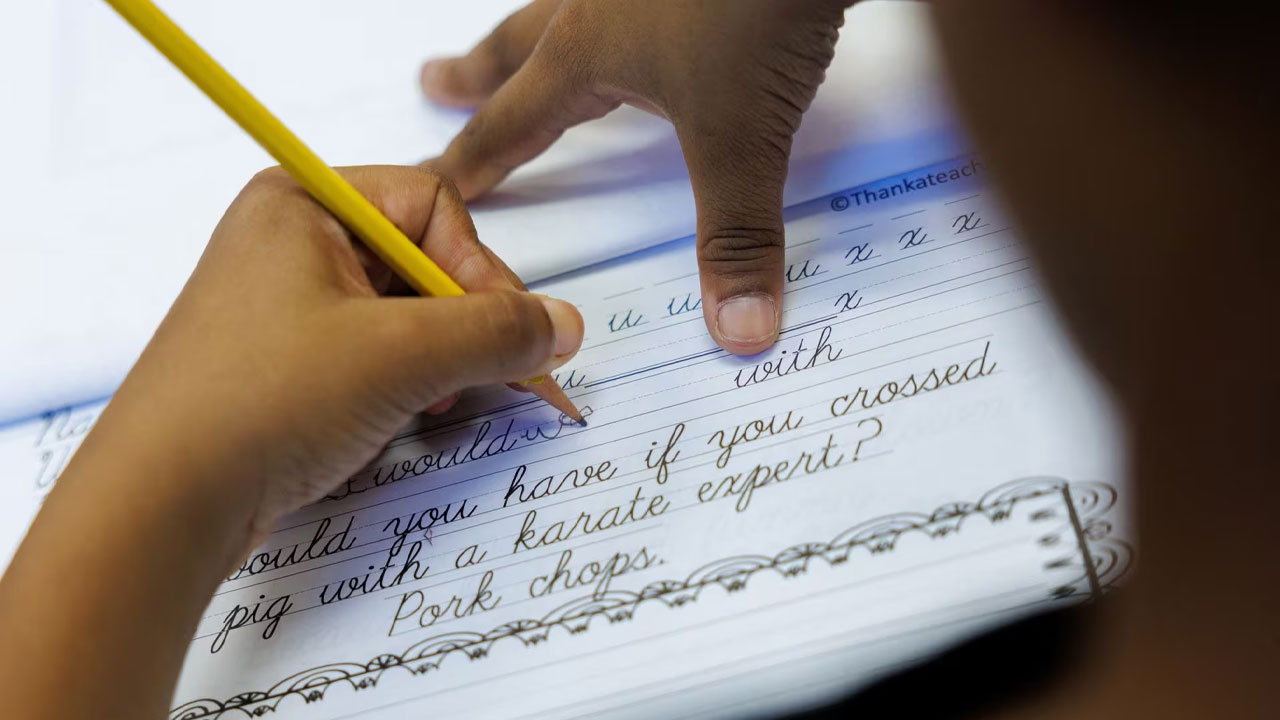 ©Thankateach
u u u x x x
u x
would we with
would you have if you crossed
pig with a karate expert?
Pork chops.